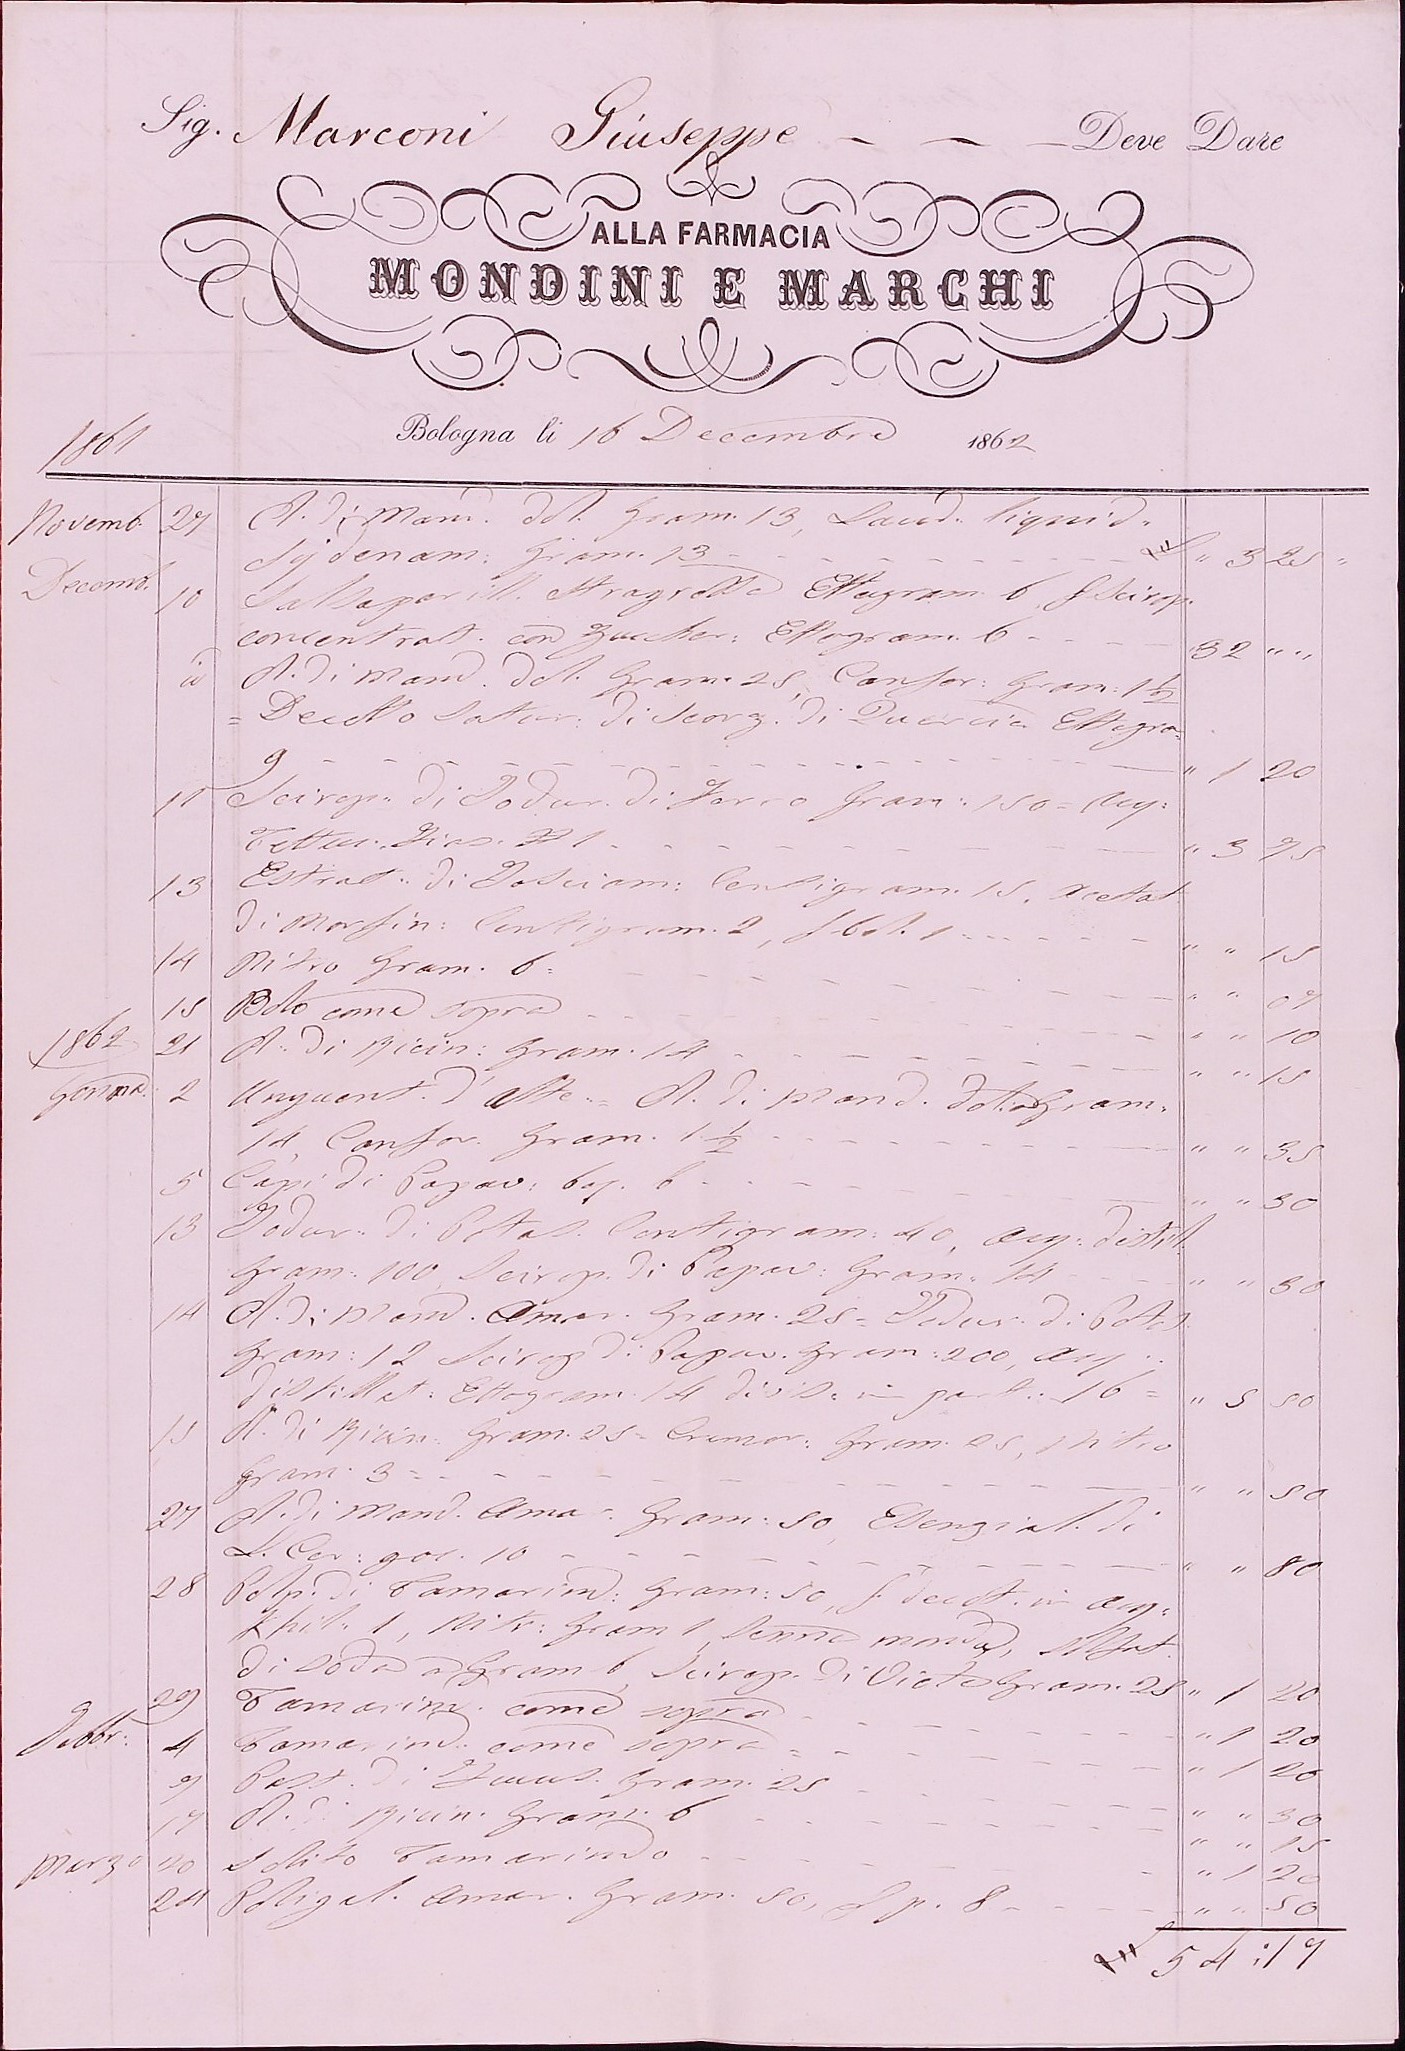 Sig. Marconi Giuseppe — — — Deve Dare
ALLA FARMACIA
MONDINI E MARCHI
Bologna li 16 Decembre 1862
1861
Novemb. 27 Ol. di Mand. dol. Gram. 13, Laud. liquid.
Sydenam: Gram. 13 £ " 3 25 "
Decemb. 10 Salsaparill. Ettogram. 6 f Scirop.
concentrat. con Zuccher: Ettogram. 6 32 " "
id Ol. di Mand. dol. Gram. 25, Canfor: Gram: 1 1/2
= Decotto Satur: di Scorz. di Quercia Ettogra.
9 " 1 20
11 Scirop. di Jodur. di Ferro Gram: 150 = Acq:
N 1 " 3 75
13 Estrat: di Josciam: Centigram. 15, Acetat
di Morfin: Centigram. 2, f bol. 1 " " 15
14 Nitro Gram. 6 = " " 07
15 Bolo come sopra " " 10
1862 21 Ol: di Ricin: Gram. 14 " " 15
Genna: 2 Unguent. d'Alte = Ol. di Mand. dol: Gram.
14, Canfor. Gram. 1 1/2 " " 35
5 Capi di Papav: 6 " " 30
13 Jodur: di Potas. Centigram: 40, Acq: distil.
Gram: 100 Scirop. di Papav: Gram. 14 " " 30
14 Ol. di Mand. Amar. Gram. 25 = Jodur. di Potas.
Gram: 12 Scirop di Papav. Gram: 200, Acq:
distillat: Ettogram. 14 divis: in part: 16 = " 5 50
15 Ol. di Ricin: Gram. 25 = Cremor: Gram. 25, Nitro
Gram. 3 " " 50
27 Ol. di Mand. Ama. Gram: 50, Essenzial. di
L. Cer: goc. 10 " " 80
28 Polp. di Tamarind: Gram: 50, f. decot. in Acq.
1, Nitr: Gram 1, Senna mond, Solfat.
di Soda a Gram 6, Scirop. di Viole Gram. 25 " 1 20
29 Tamarind. come sopra " 1 20
Febbr: 4 Tamarind: come sopra " 1 20
9 Past. di Gram. 25 " " 30
17 Ol. di Ricin. Gram. 6 " " 15
Marzo 20 Solito Tamarindo " 1 20
24 Poligal. Amar. Gram. 50, f p. 8 " " 50
£ 54:17